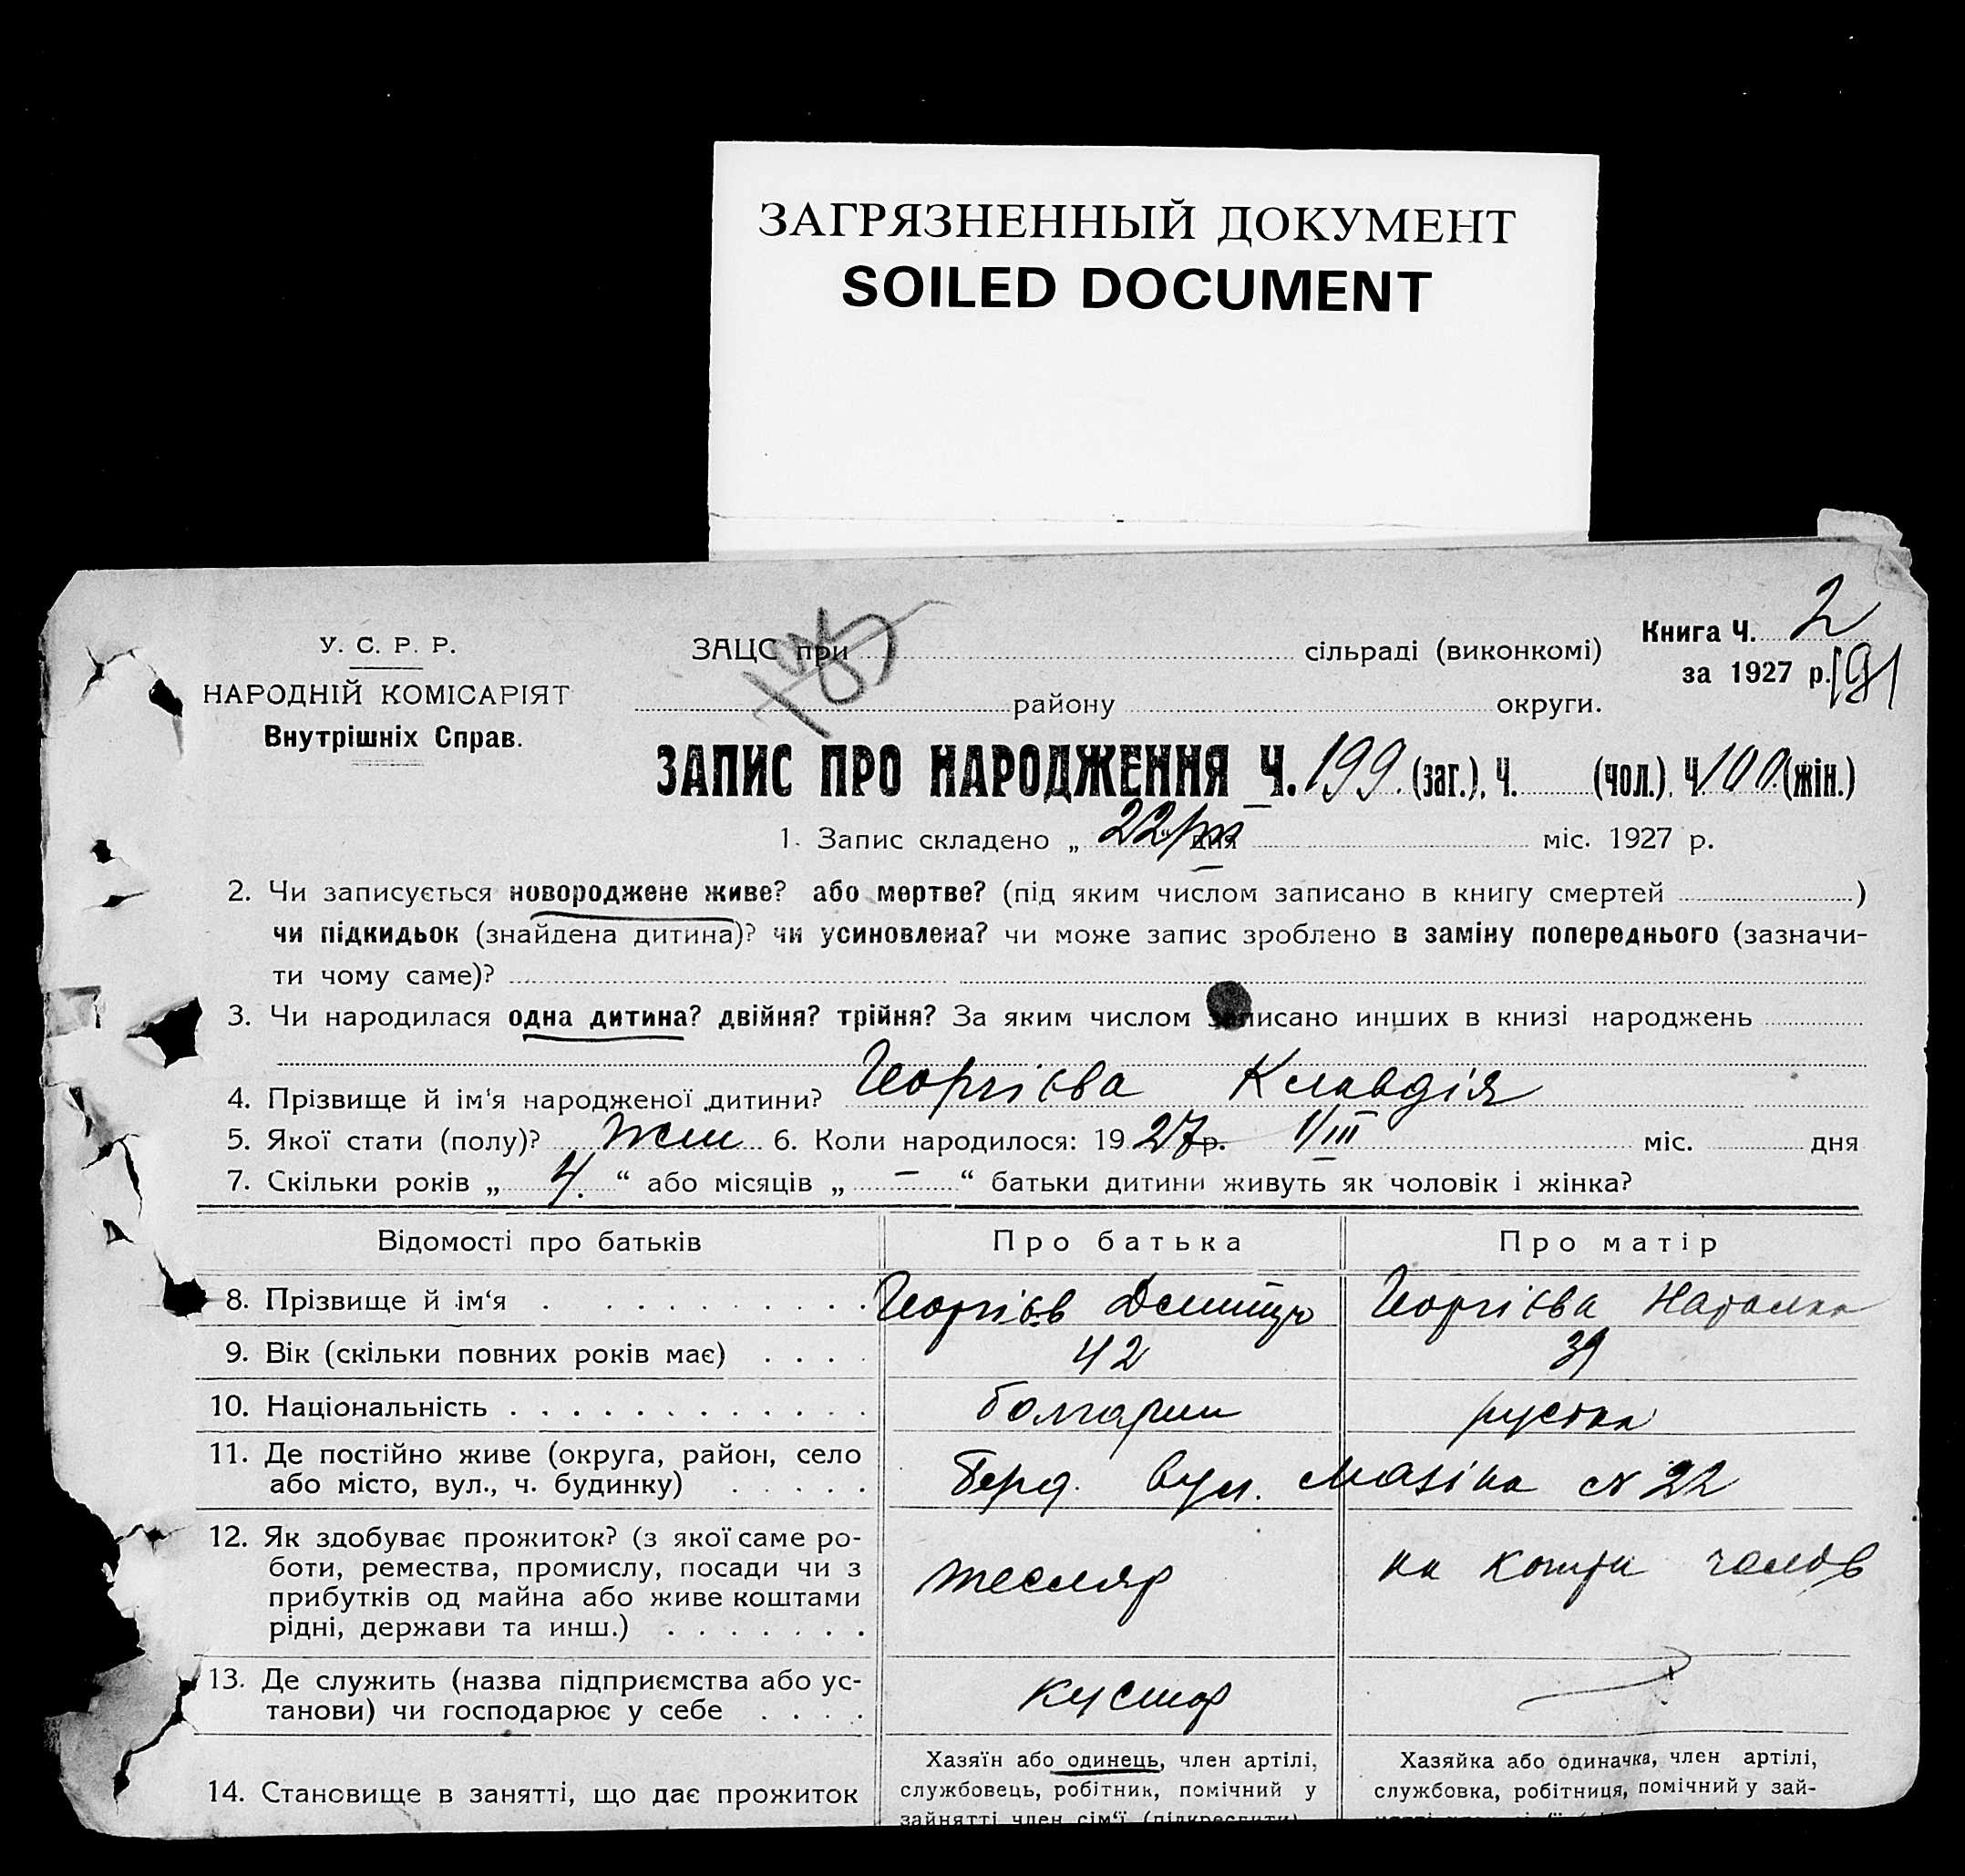 ЗАГРЯЗНЕННЫЙ ДОКУМЕНТ
SOILED DOCUMENT
У. С. Р. Р.
НАРОДНІЙ КОМІСАРІЯТ
Внутрішніх Справ.
ЗАЦС при сільраді (виконкомі)
району округи.
Книга Ч. 2
за 1927 р. 191
ЗАПИС ПРО НАРОДЖЕННЯ Ч. 199. (заг.), Ч. (чол.), Ч. 100. (жін.)
1. Запис складено „ 22/III “ дня міс. 1927 р.
2. Чи записується новороджене живе? або мертве? (під яким числом записано в книгу смертей )
чи підкидьок (знайдена дитина)? чи усиновлена? чи може запис зроблено в заміну попереднього (зазначи-
ти чому саме)?
3. Чи народилася одна дитина? двійня? трійня? За яким числом записано инших в книзі народжень
4. Прізвище й ім‘я народженої дитини? Георгієва Клавдія
5. Якої стати (полу)? жін 6. Коли народилося: 1927 р. 1/III міс. дня
7. Скільки років „ 4. “ або місяців „ — “ батьки дитини живуть як чоловік і жінка?
Відомості про батьків Про батька Про матір
8. Прізвище й ім‘я Георгієв Дмитро Георгієва Наталка
9. Вік (скільки повних років має) 42 39
10. Національність болгарин руська
11. Де постійно живе (округа, район, село
або місто, вул., ч. будинку) Берд. вул. Мазіна № 22
12. Як здобуває прожиток? (з якої саме ро-
боти, ремества, промислу, посади чи з
прибутків од майна або живе коштами
рідні, держави та инш.) тесляр на кошти чолов
13. Де служить (назва підприємства або ус-
танови) чи господарює у себе кустар
14. Становище в занятті, що дає прожиток
Хазяїн або одинець, член артілі,
службовець, робітник, помічний у
зайнятті член сім‘ї (підкреслити)
Хазяйка або одиначка, член артілі,
службовка, робітниця, помічний у зай-